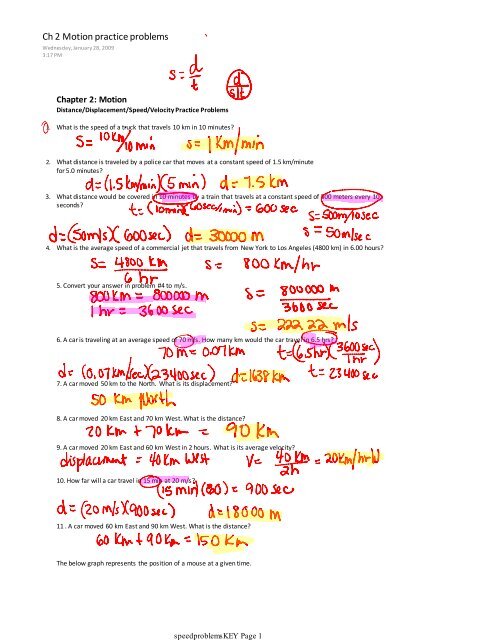 Ch 2 Motion practice problems
Wednesday, January 28, 2009
3:17 PM
s = d/t
d
s t
Chapter 2: Motion
Distance/Displacement/Speed/Velocity Practice Problems
1. What is the speed of a truck that travels 10 km in 10 minutes?
s = 10 km/10 min s = 1 km/min
2. What distance is traveled by a police car that moves at a constant speed of 1.5 km/minute
for 5.0 minutes?
d = (1.5 km/min)(5 min) d = 7.5 km
3. What distance would be covered in 10 minutes by a train that travels at a constant speed of 500 meters every 10
seconds?
t = (10 min)(60 sec/min) = 600 sec
s = 500m/10 sec
d = (50m/s)(600 sec) d = 30000 m s = 50 m/sec
4. What is the average speed of a commercial jet that travels from New York to Los Angeles (4800 km) in 6.00 hours?
s = 4800 km/6 hr s = 800 km/hr
5. Convert your answer in problem #4 to m/s.
800 km = 800000 m s = 800000 m/3600 sec
1 hr = 3600 sec
s = 222.22 m/s
6. A car is traveling at an average speed of 70 m/s. How many km would the car travel in 6.5 hrs?
70 m = 0.07 km t = (6.5hr)(3600 sec/1 hr)
d = (0.07 km/sec)(23400 sec) d = 1638 km t = 23400 sec
7. A car moved 50 km to the North. What is its displacement?
50 km North
8. A car moved 20 km East and 70 km West. What is the distance?
20 km + 70 km = 90 km
9. A car moved 20 km East and 60 km West in 2 hours. What is its average velocity?
displacement = 40 km West V = 40 km/2h = 20 km/hr W
10. How far will a car travel in 15 min at 20 m/s?
(15 min)(60) = 900 sec
d = (20 m/s)(900 sec) d = 18000 m
11. A car moved 60 km East and 90 km West. What is the distance?
60 km + 90 km = 150 km
The below graph represents the position of a mouse at a given time.
speedproblemsKEY Page 1